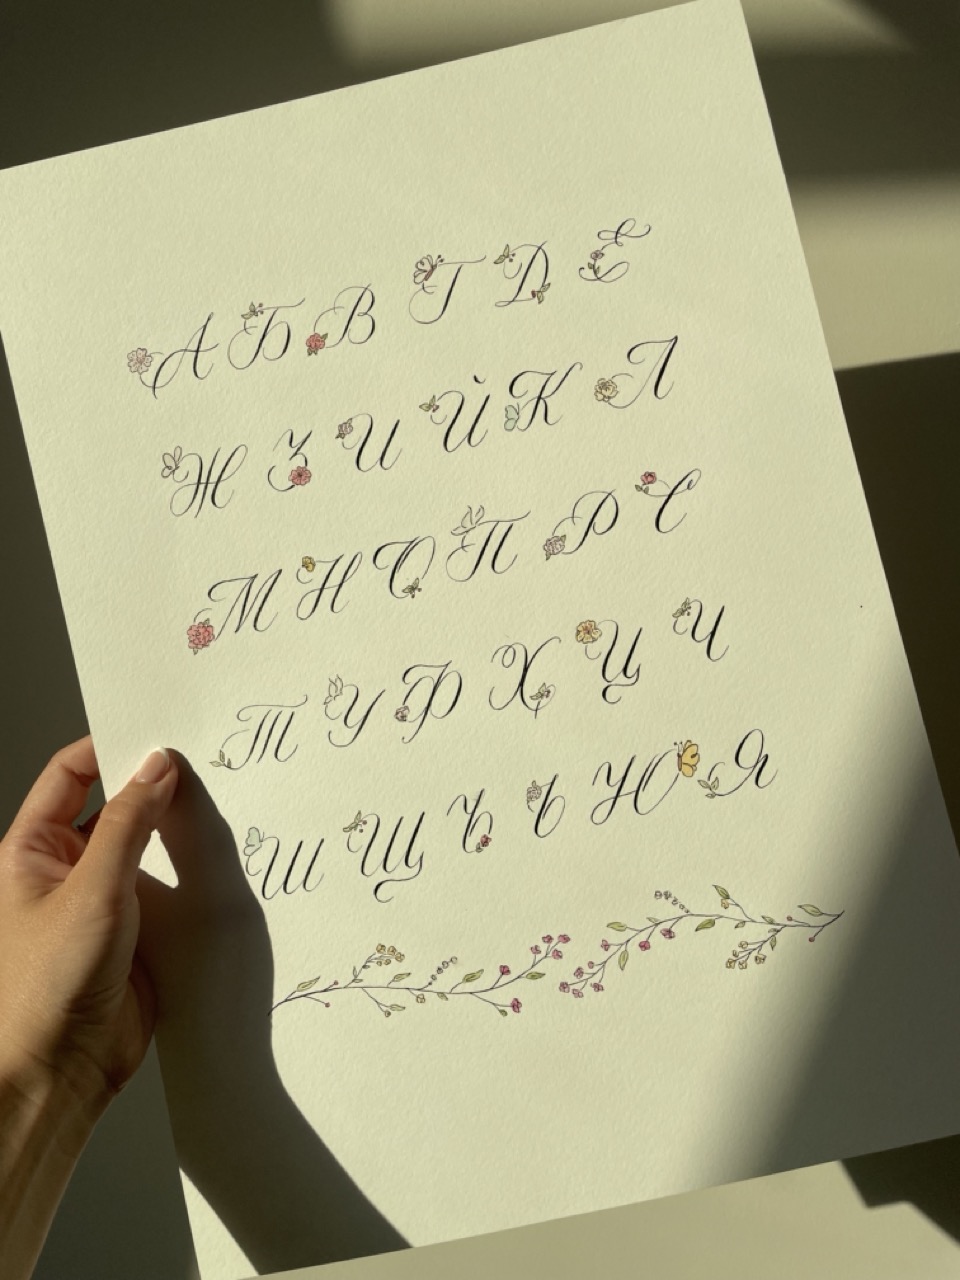 А Б В Г Д Е
Ж З И Й К Л
М Н О П Р С
Т У Ф Х Ц Ч
Ш Щ Ъ Ь Ю Я